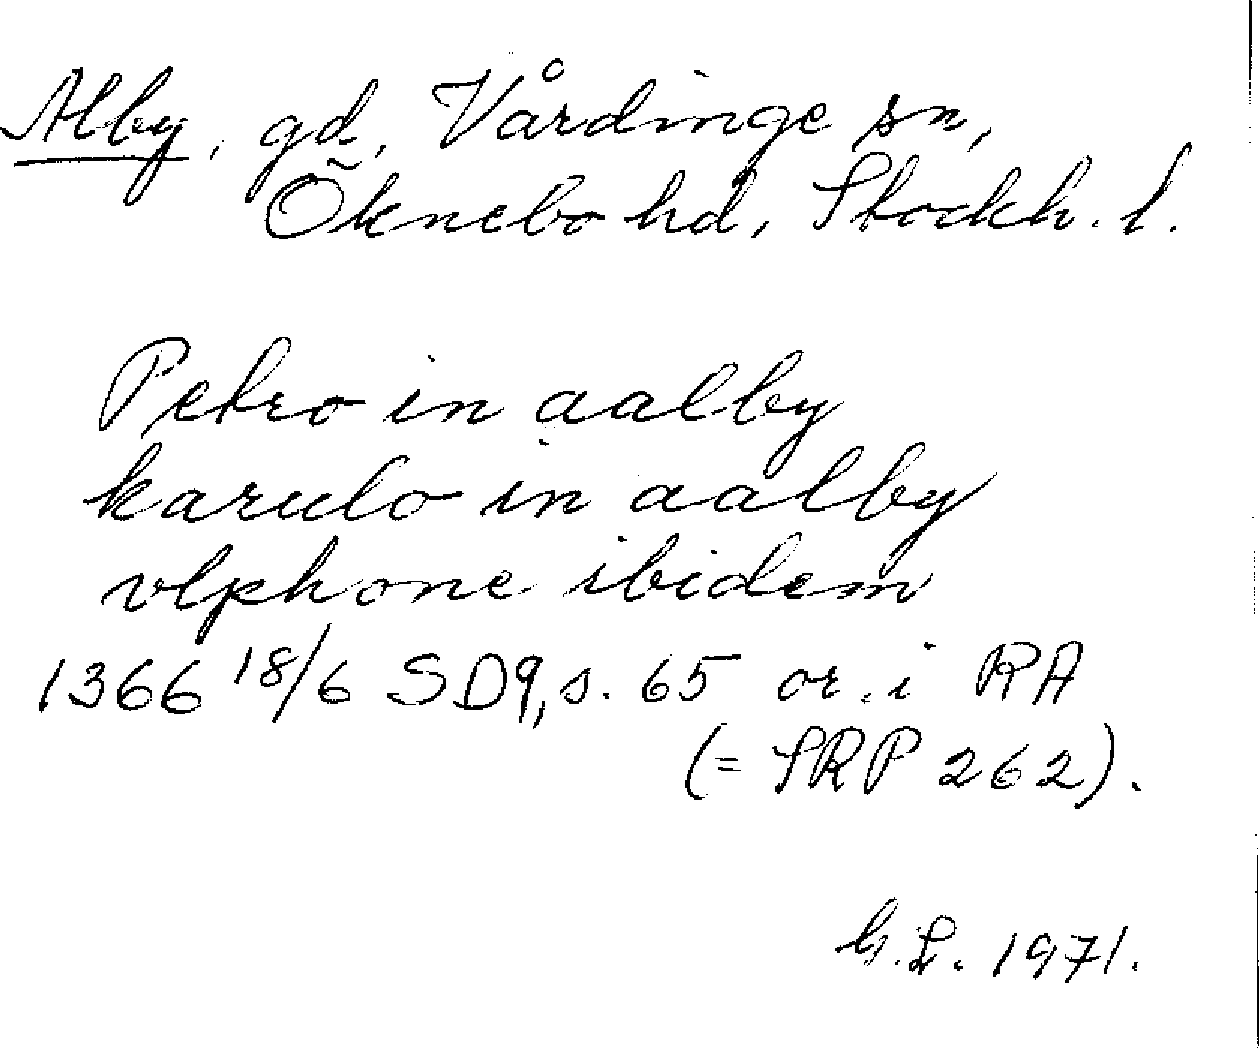 Alby, gd, Vårdinge sn,
Öknebo hd, Stockh. l.
Petro in aalby
karulo in aalby
vlphone ibidem
1366 18/6 SD9, s. 65 or. i RA
(= SRP 262).
G.L. 1971.